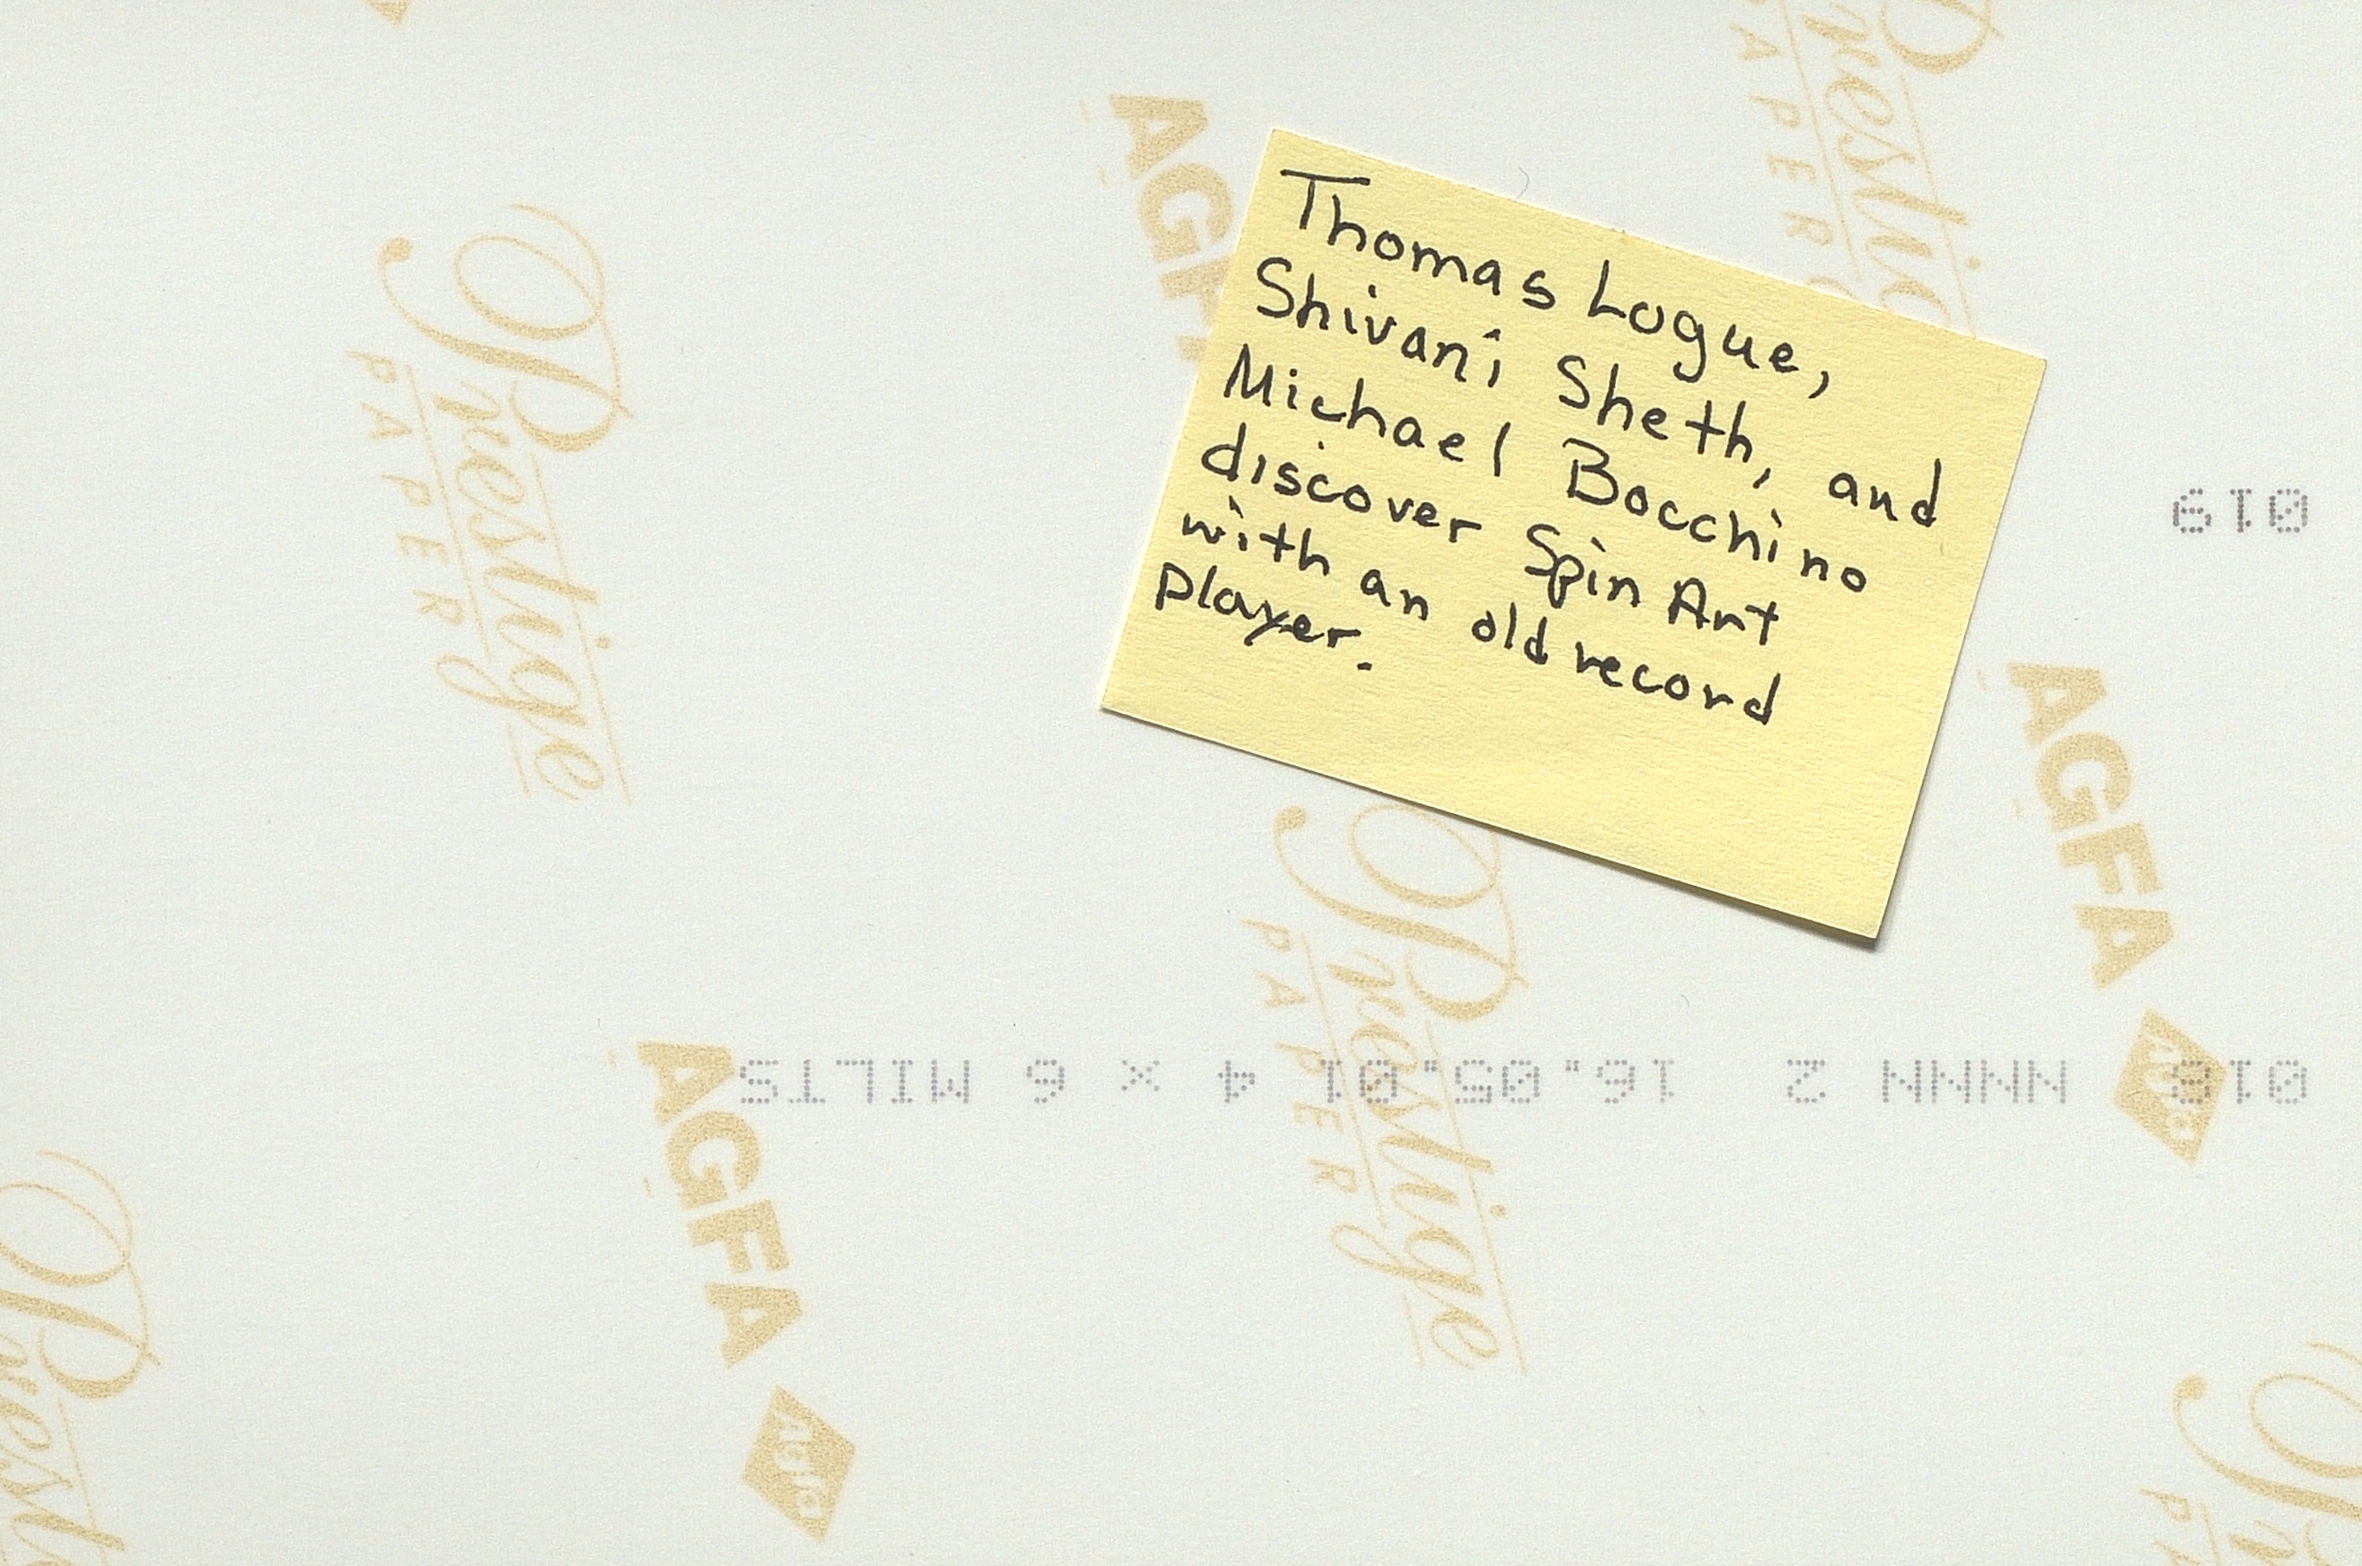 Thomas Logue,
Shivani Sheth, and
Michael Bocchino
discover Spin Art
with an old record
player.
AGFA
Prestige
PAPER
Prestige
PAPER
019
AGFA
Agfa
Prestige
PAPER
018 NNNN 2 16.05.01 4 X 6 MILTS
AGFA
Agfa